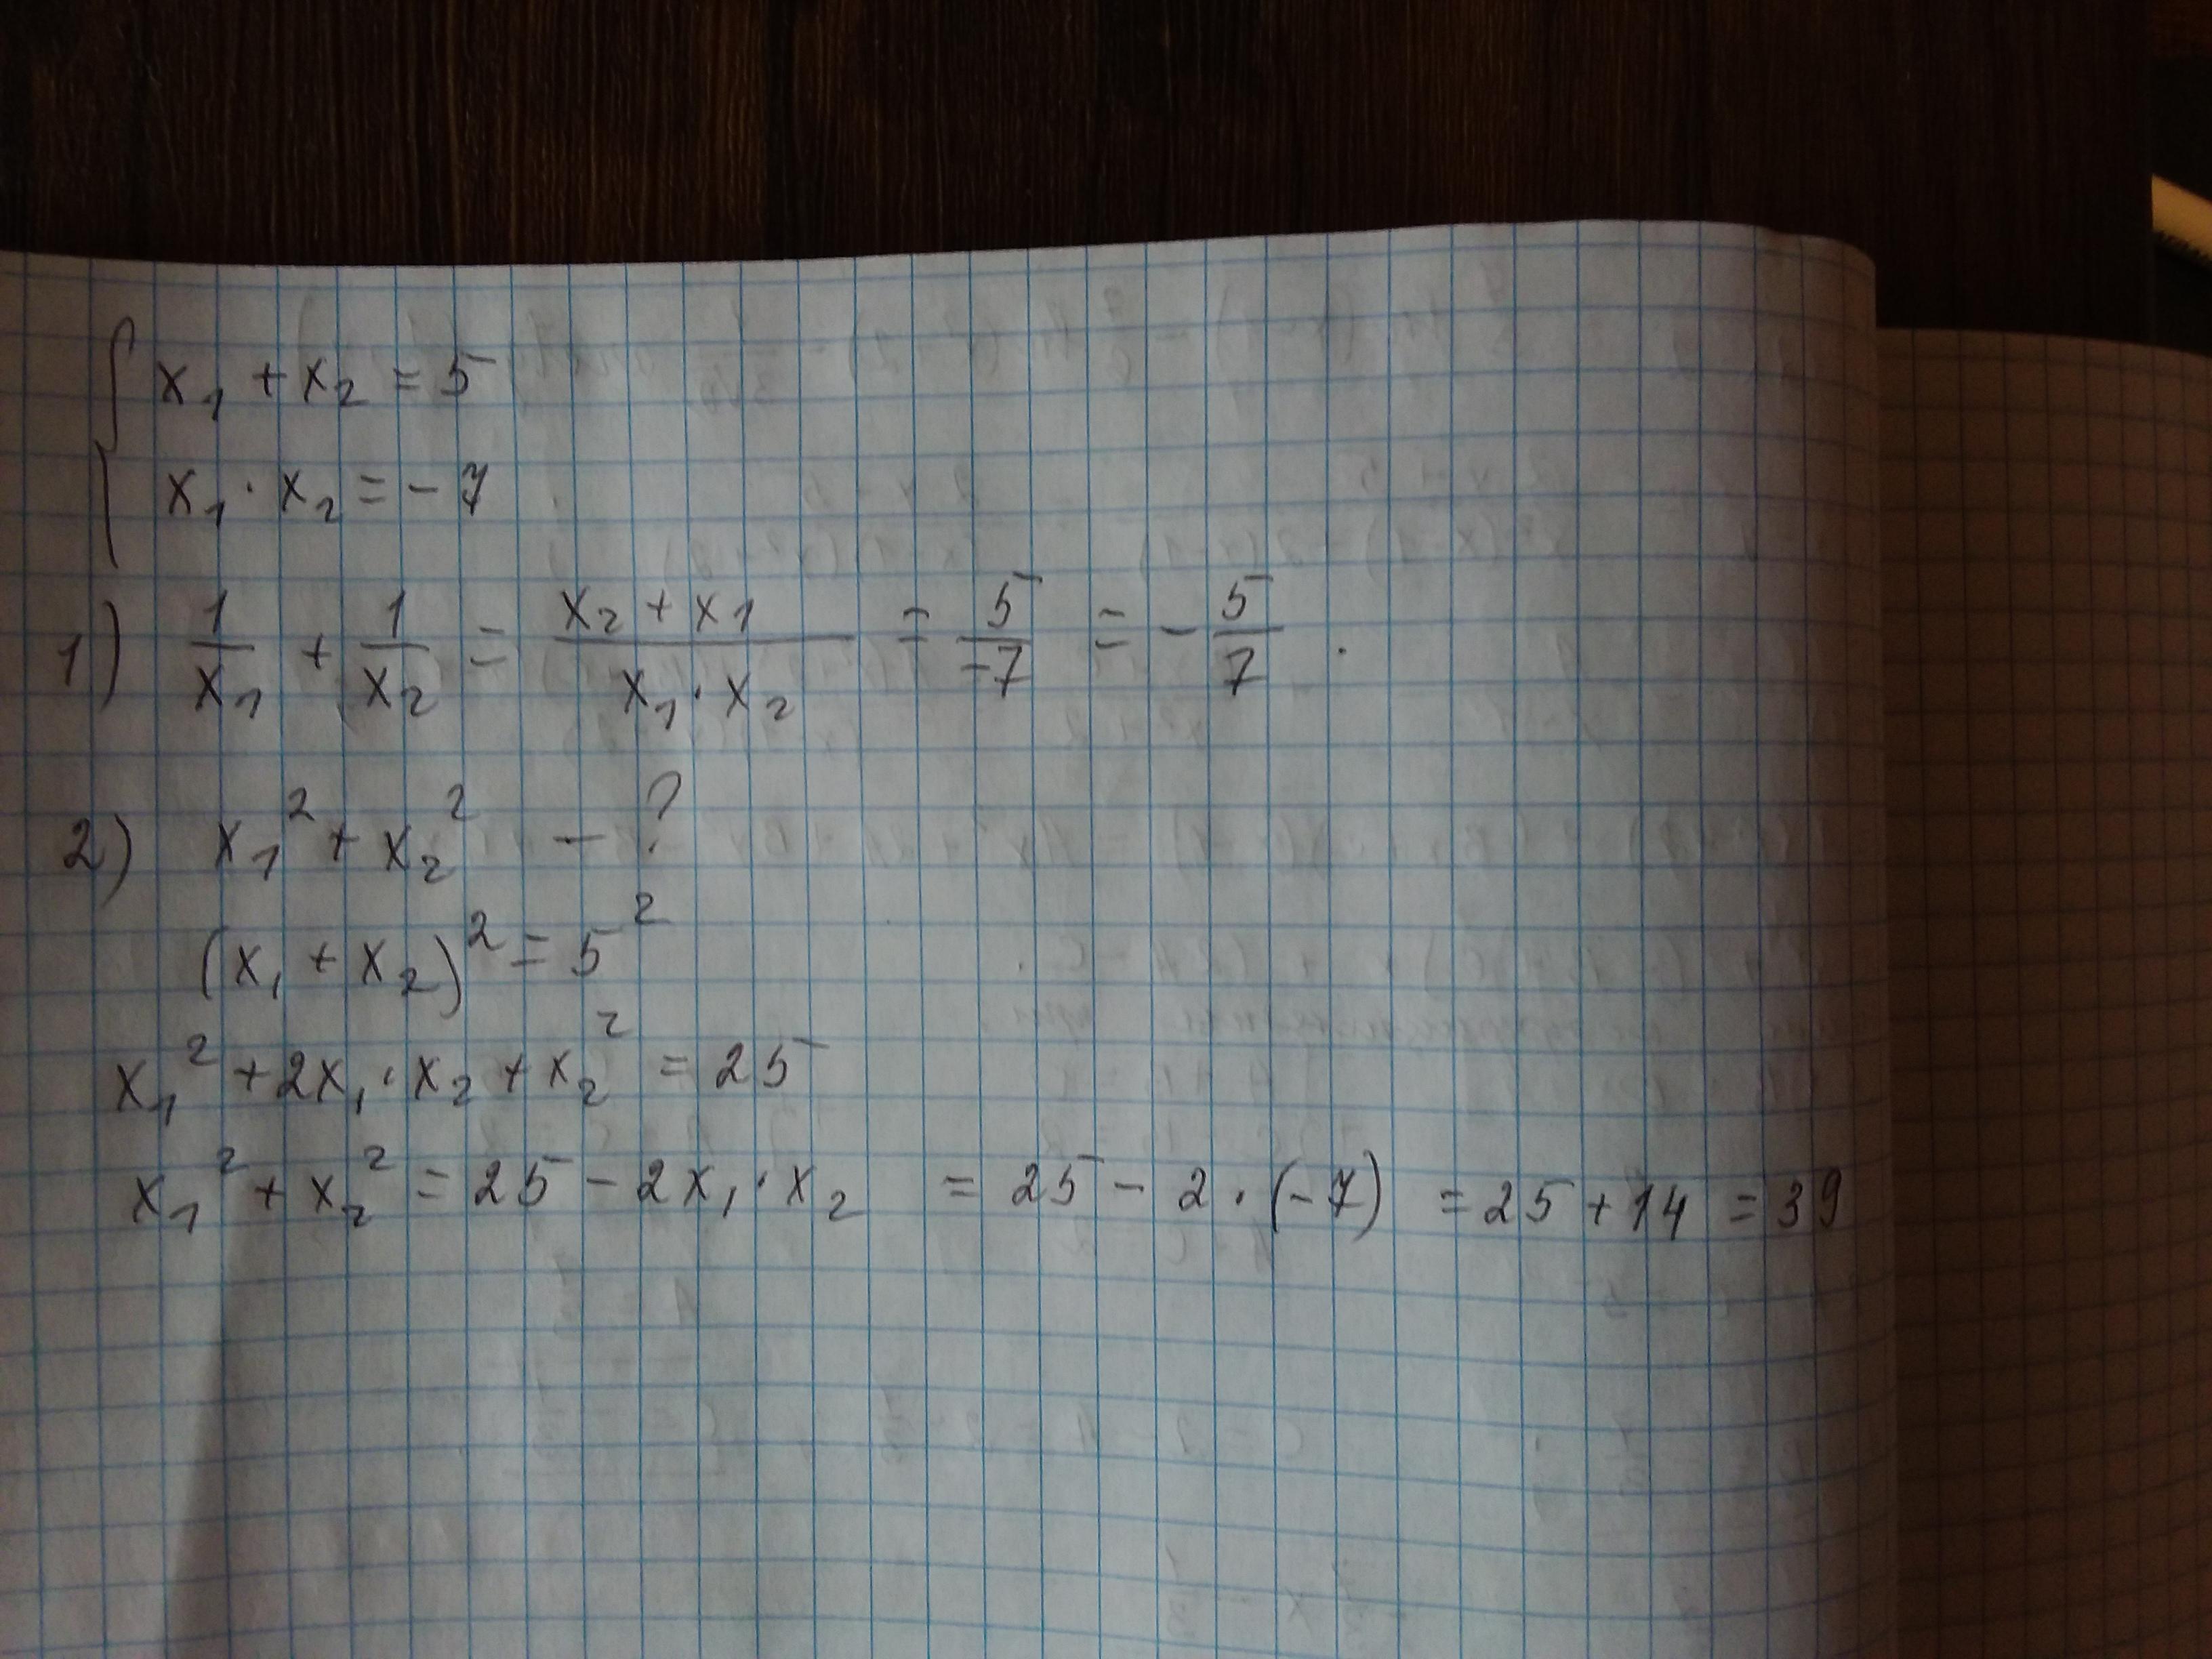 { x₁ + x₂ = 5
x₁ · x₂ = - 7
1) 1/x₁ + 1/x₂ = (x₂ + x₁)/(x₁ · x₂) = 5/-7 = - 5/7 .
2) x₁² + x₂² - ?
(x₁ + x₂)² = 5²
x₁² + 2x₁ · x₂ + x₂² = 25
x₁² + x₂² = 25 - 2x₁ · x₂ = 25 - 2 · (-7) = 25 + 14 = 39